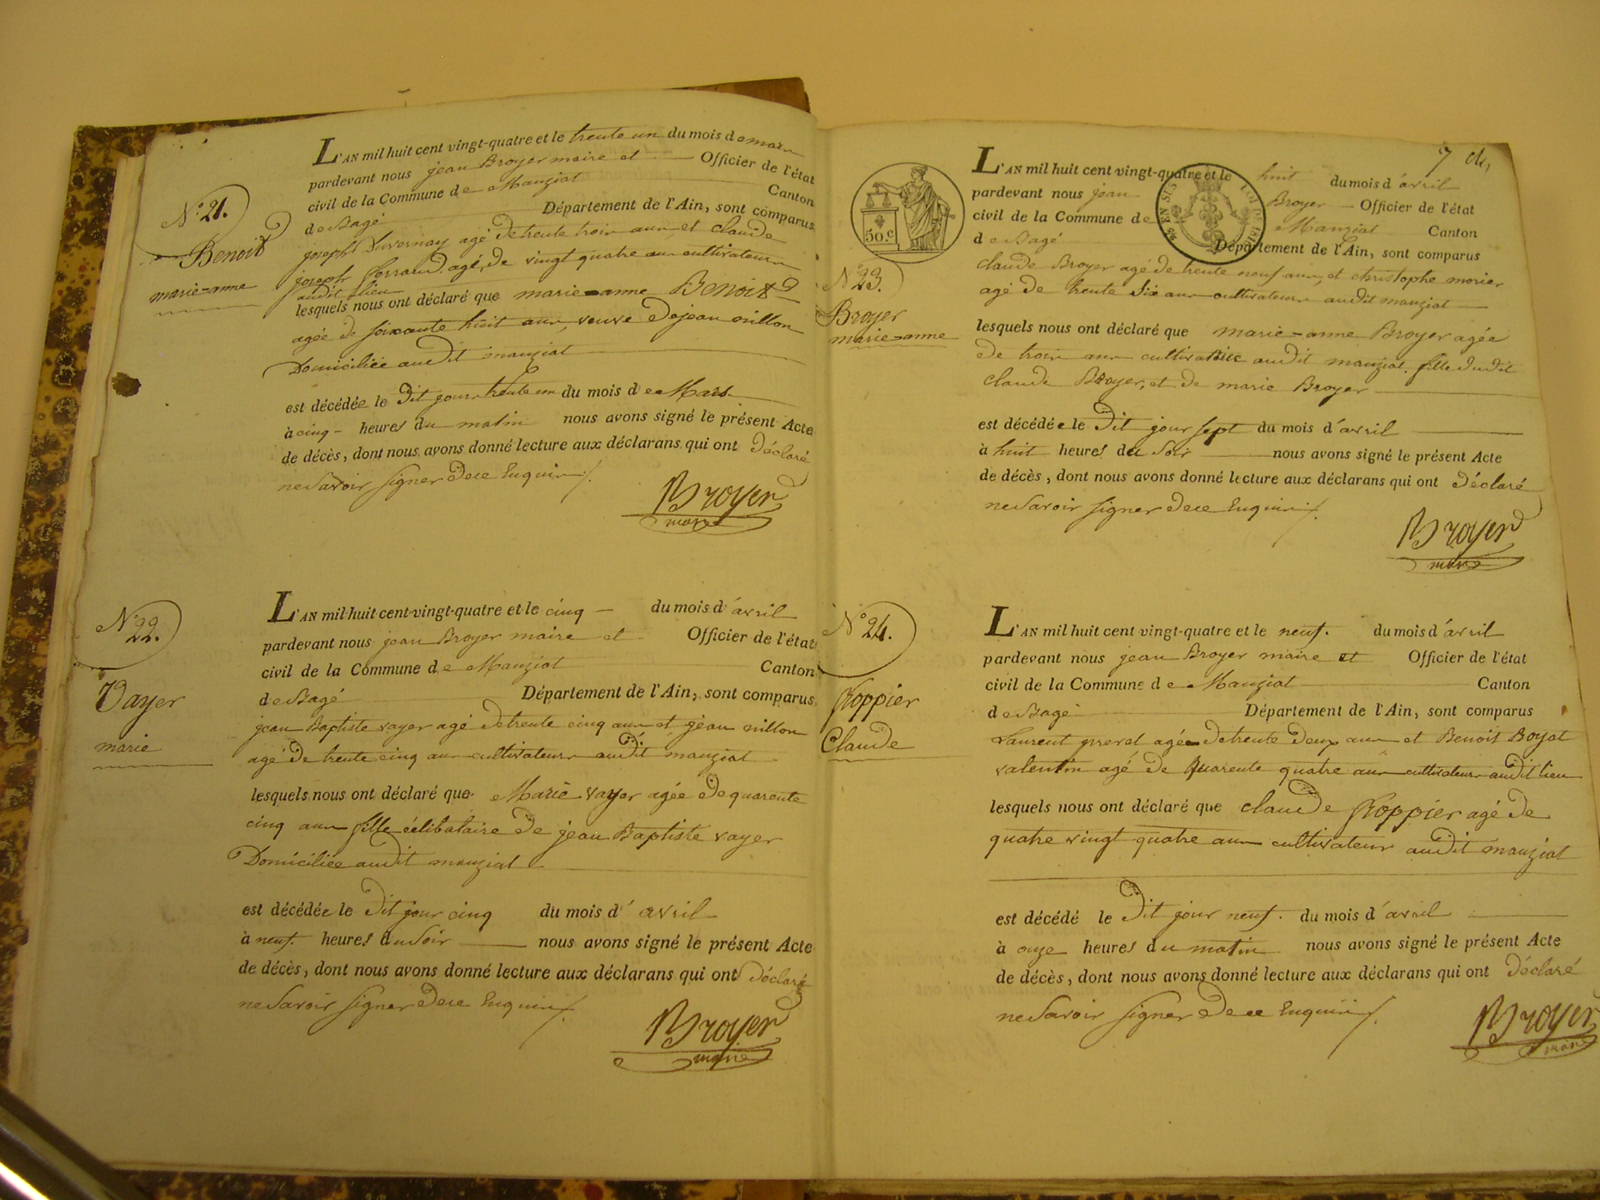 N° 21.
Benoit
marie-anne
L'AN mil huit cent vingt-quatre et le trente un du mois de mars
pardevant nous jean Broyer maire et Officier de l'état
civil de la Commune de Manziat Canton
de Bagé Département de l'Ain, sont comparus
joseph Duvernay agé de trente trois ans et claude
joseph agé de vingt quatre ans cultivateurs
audit lieu
lesquels nous ont déclaré que marie-anne Benoit
agée de soixante huit ans, veuve de jean
Domiciliée audit manziat
est décédée le dit jour trente un du mois de Mars
à cinq heures du matin nous avons signé le présent Acte
de décès, dont nous avons donné lecture aux déclarans qui ont déclaré
ne Savoir signer de ce Enquis
Broyer
maire
N° 22.
Vayer
marie
L'AN mil huit cent vingt-quatre et le cinq du mois d'avril
pardevant nous jean Broyer maire et Officier de l'état
civil de la Commune de Manziat Canton
de Bagé Département de l'Ain, sont comparus
jean Baptiste vayer agé de trente cinq ans et jean
agé de trente cinq ans cultivateurs audit manziat
lesquels nous ont déclaré que Marie vayer agée de quarente
cinq ans fille célibataire de jean Baptiste vayer
Domiciliée audit manziat
est décédée le dit jour cinq du mois d'avril
à neuf heures du Soir nous avons signé le présent Acte
de décès, dont nous avons donné lecture aux déclarans qui ont déclaré
ne Savoir signer de ce Enquis
Broyer
maire
7
50 c
EN SUS
N° 23.
Broyer
marie-anne
L'AN mil huit cent vingt-quatre et le huit du mois d'avril
pardevant nous jean Broyer Officier de l'état
civil de la Commune de Manziat Canton
de Bagé Département de l'Ain, sont comparus
claude Broyer agé de trente neuf ans, et christophe morier
agé de trente Six ans cultivateurs audit manziat
lesquels nous ont déclaré que marie-anne Broyer agée
de trois ans cultivatrice audit manziat, fille dudit
claude Broyer, et de marie Broyer
est décédée le dit jour sept du mois d'avril
à huit heures du Soir nous avons signé le présent Acte
de décès, dont nous avons donné lecture aux déclarans qui ont déclaré
ne Savoir signer de ce Enquis
Broyer
maire
N° 24.
Claude
L'AN mil huit cent vingt-quatre et le neuf du mois d'avril
pardevant nous jean Broyer maire et Officier de l'état
civil de la Commune de Manziat Canton
de Bagé Département de l'Ain, sont comparus
Laurent agé de trente deux ans et Benoit Boyat
valentin agé de quarente quatre ans cultivateurs audit lieu
lesquels nous ont déclaré que claude agé de
quatre vingt quatre ans cultivateur audit manziat
est décédé le dit jour neuf du mois d'avril
à onze heures du matin nous avons signé le présent Acte
de décès, dont nous avons donné lecture aux déclarans qui ont déclaré
ne Savoir signer de ce Enquis
Broyer
maire